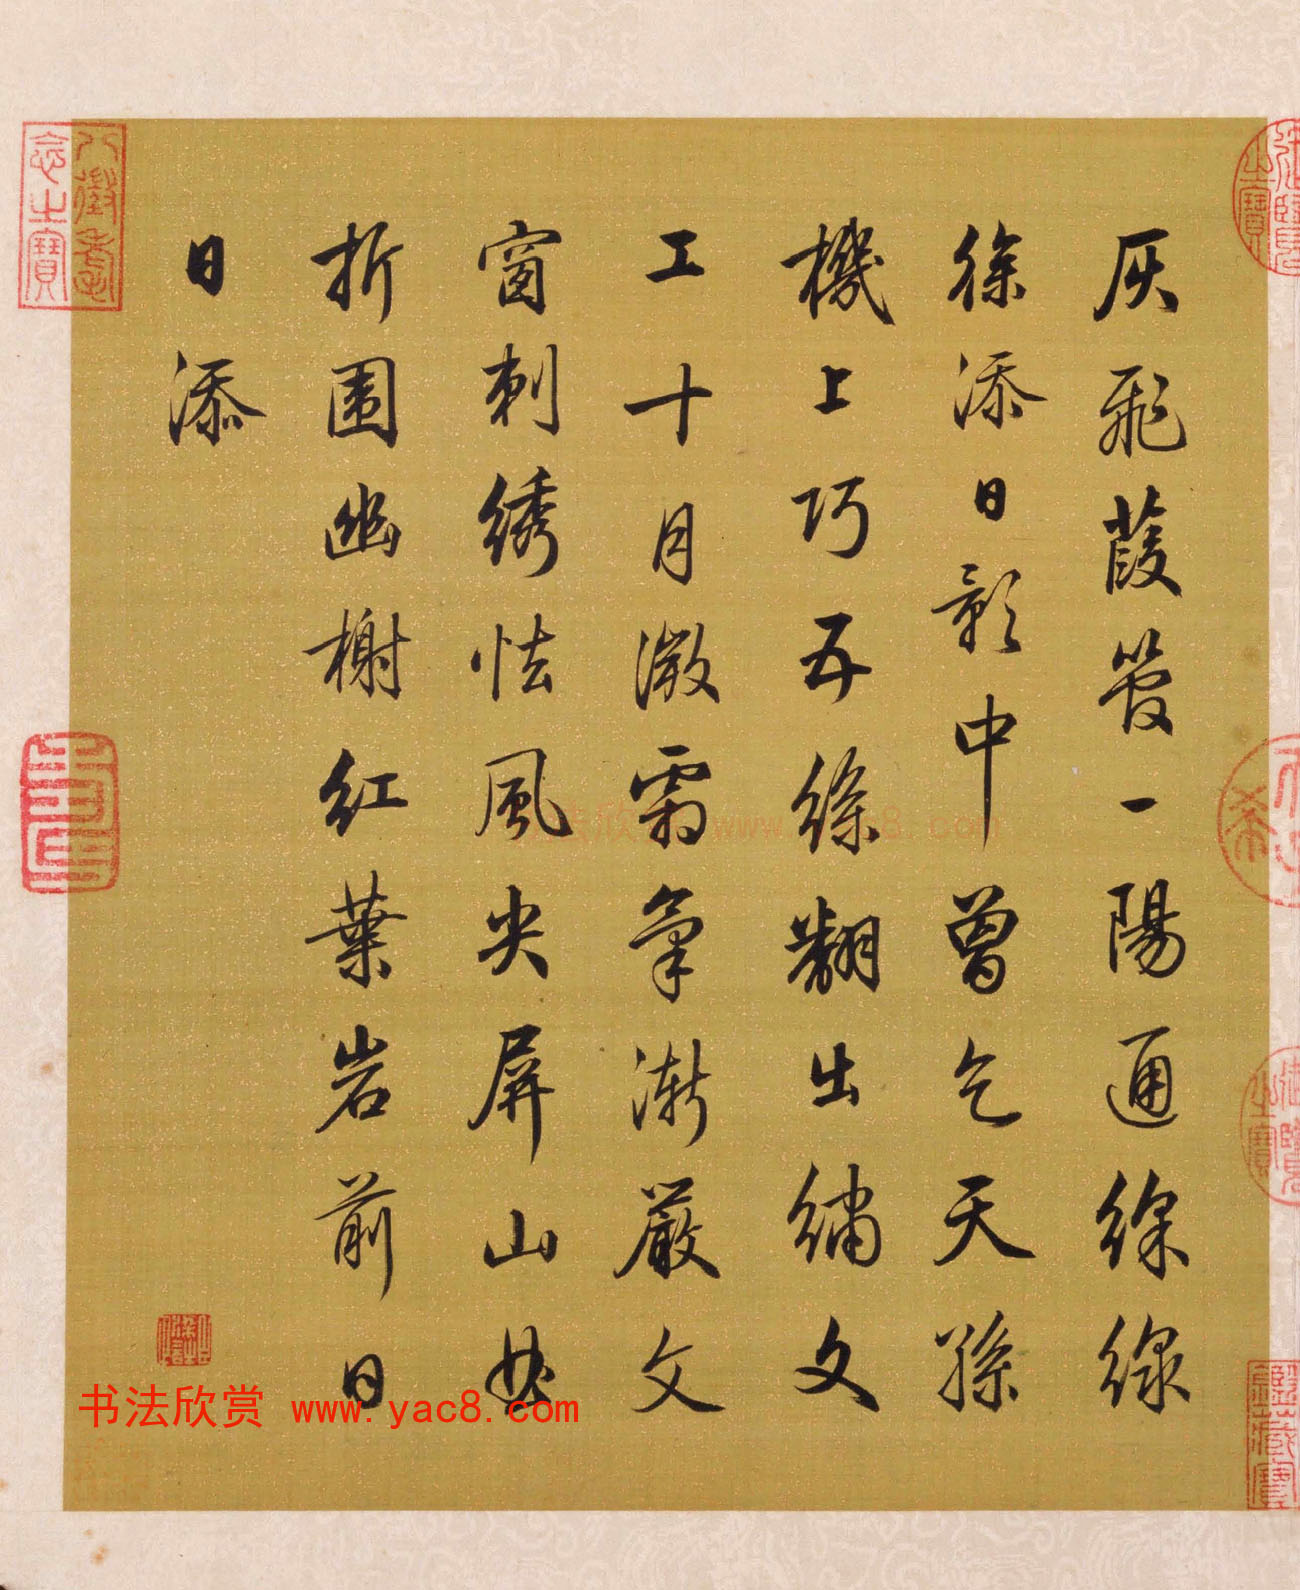 灰飛葭管一陽通徐線
徐添日影中曾乞天孫
機上巧五絲翻出繡文
工十月微霜氣漸嚴文
窗刺綉怯風尖屏山曲
折圍幽榭紅葉岩前日
日添
八徵耄
念之寶
書法欣赏 www.yac8.com